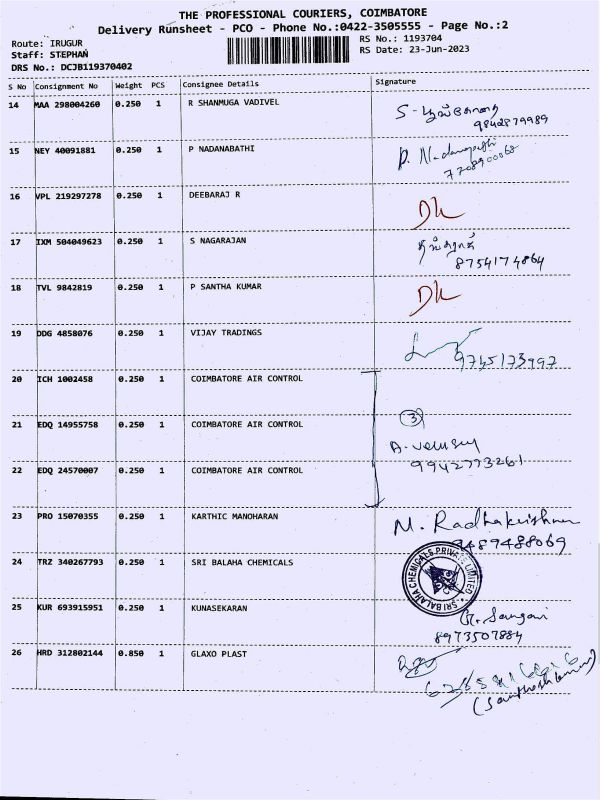 THE PROFESSIONAL COURIERS, COIMBATORE
Delivery Runsheet - PCO - Phone No.:0422-3505555 - Page No.:2
Route: IRUGUR
RS No.: 1193704
Staff: STEPHAN
RS Date: 23-Jun-2023
DRS No.: DCJB119370402
S No Consignment No Weight PCS Consignee Details Signature
14 MAA 298004260 0.250 1 R SHANMUGA VADIVEL
9842879989
15 NEY 40091881 0.250 1 P NADANABATHI
16 VPL 219297278 0.250 1 DEEBARAJ R
17 IXM 504049623 0.250 1 S NAGARAJAN
8754174864
18 TVL 9842819 0.250 1 P SANTHA KUMAR
19 DDG 4858076 0.250 1 VIJAY TRADINGS
9745173997
20 ICH 1002458 0.250 1 COIMBATORE AIR CONTROL
3
21 EDQ 14955758 0.250 1 COIMBATORE AIR CONTROL
9942773261
22 EDQ 24570007 0.250 1 COIMBATORE AIR CONTROL
23 PRO 15070355 0.250 1 KARTHIC MANOHARAN M. Radhakrishnan
9489488069
24 TRZ 340267793 0.250 1 SRI BALAHA CHEMICALS
SRI BALAHA CHEMICALS PRIVATE LIMITED
25 KUR 693915951 0.250 1 KUNASEKARAN
8973507884
26 HRD 312802144 0.850 1 GLAXO PLAST